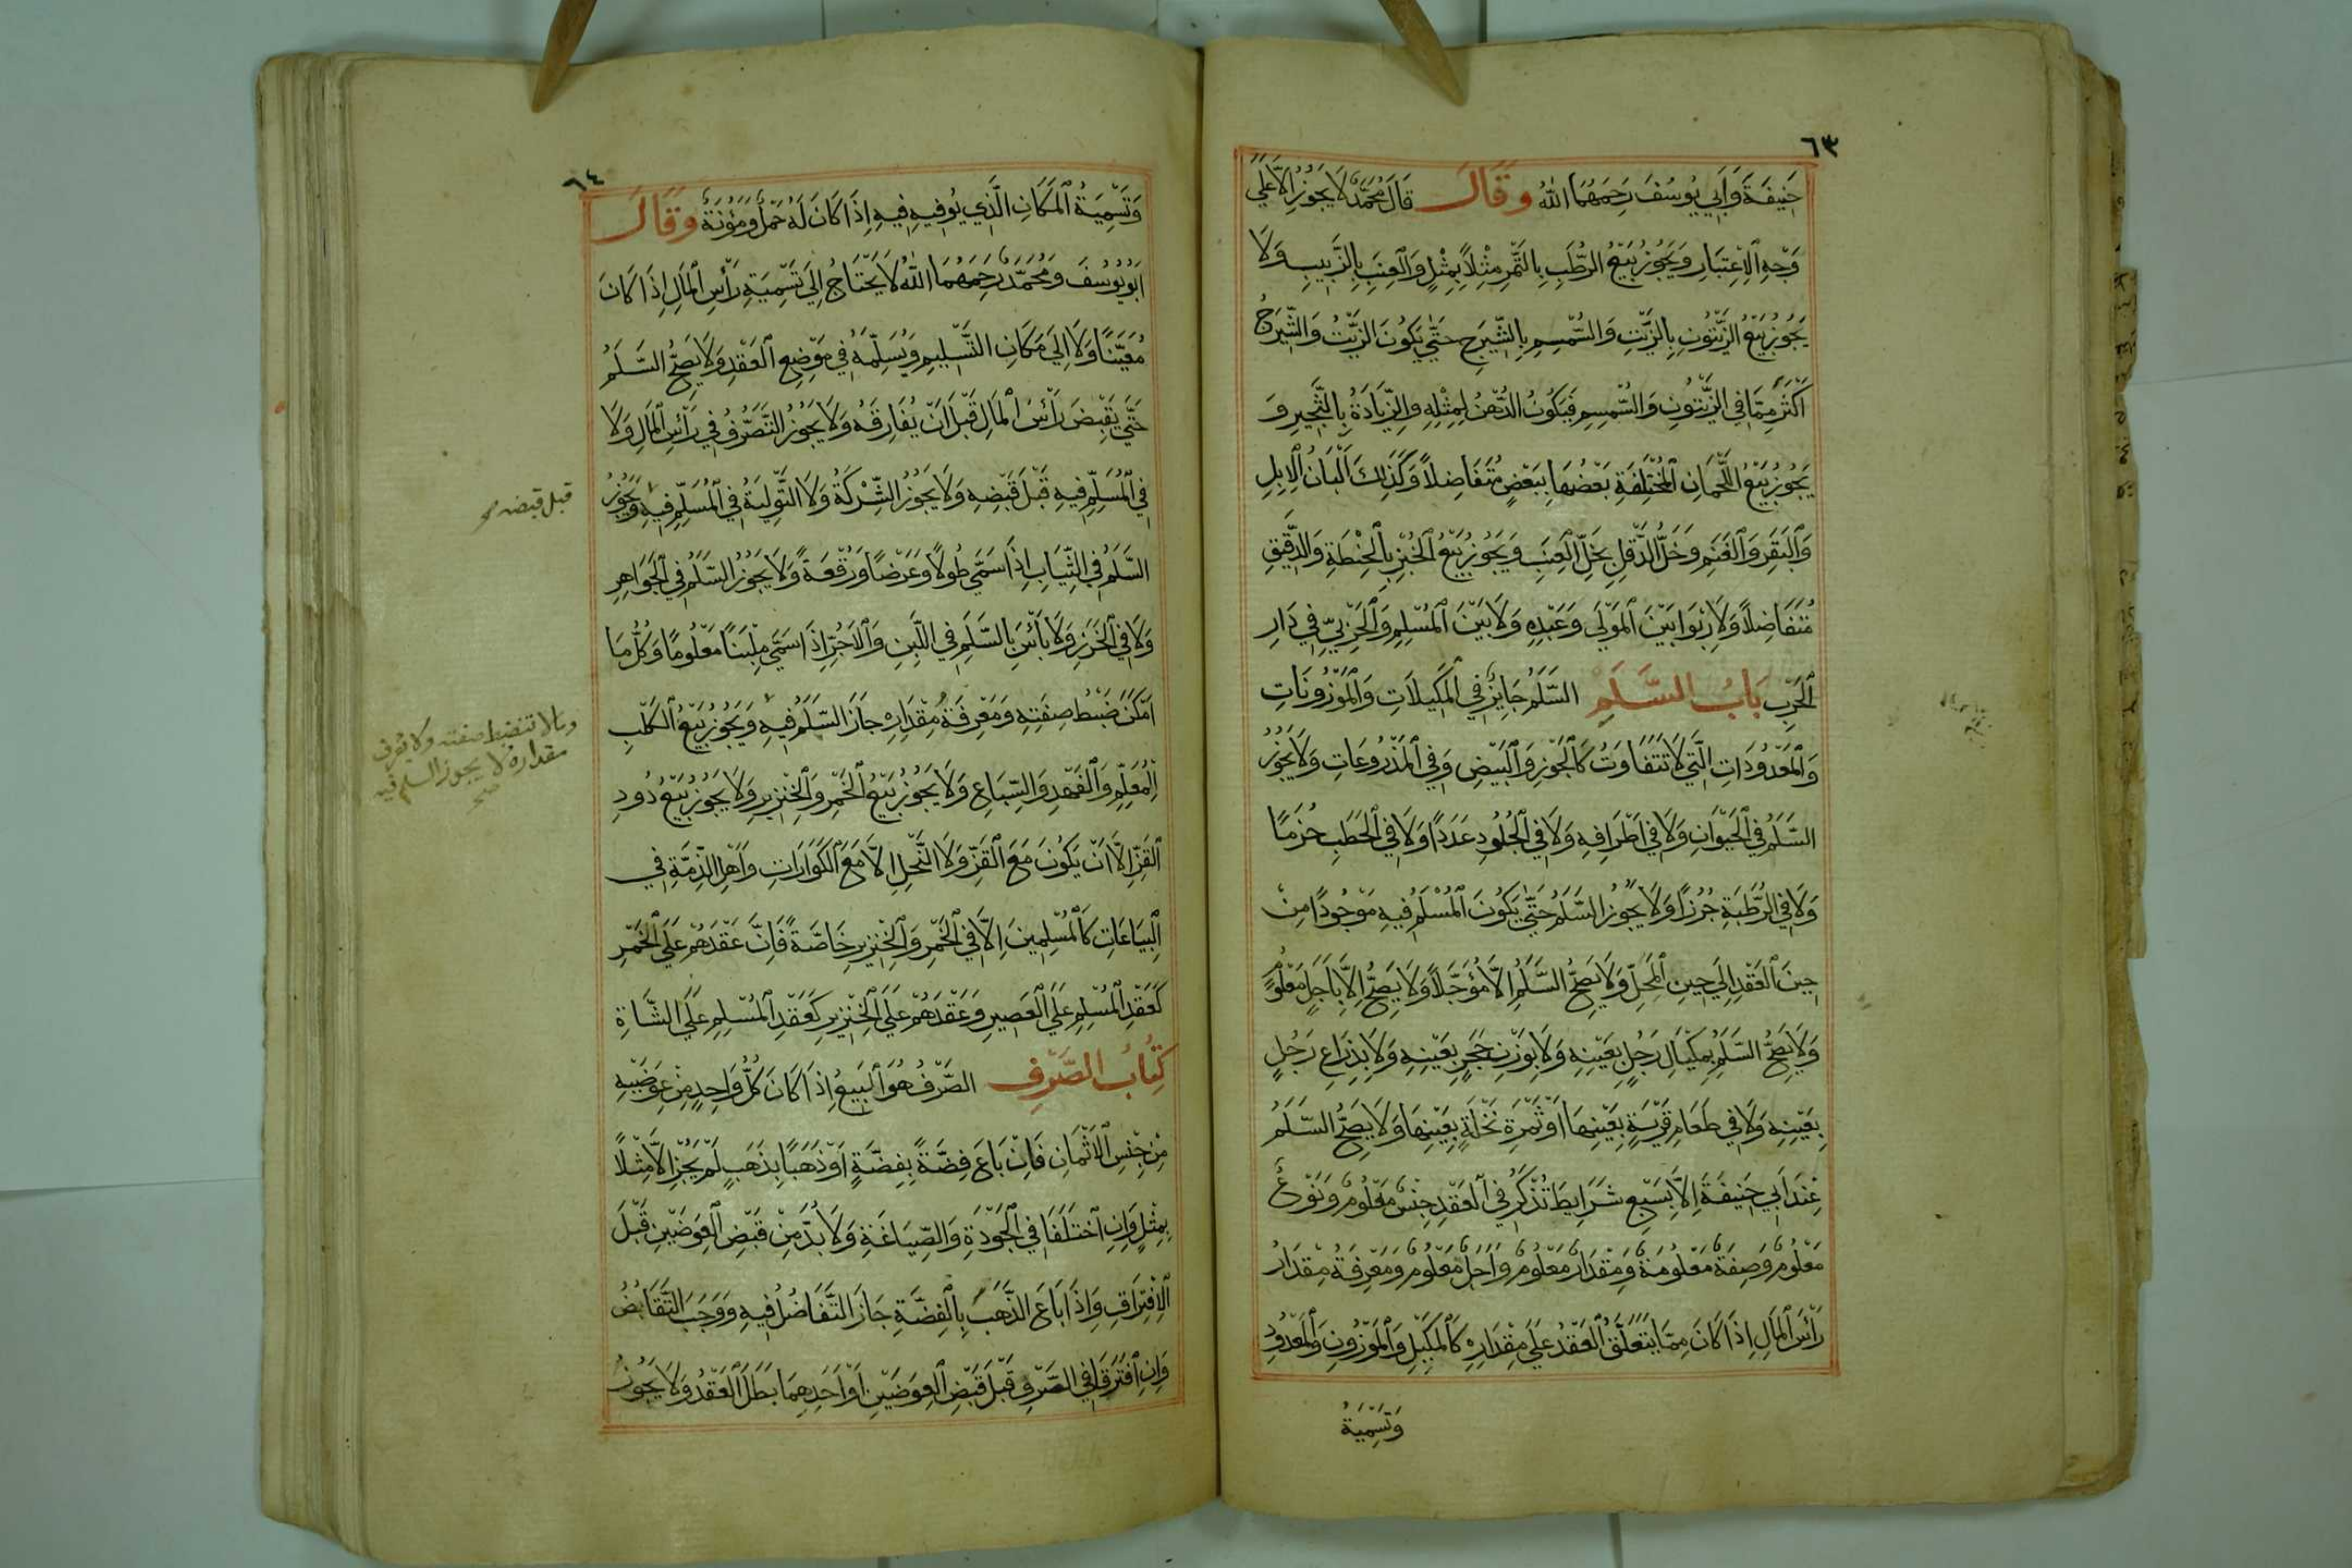 ٦٣
حَنِيفَةَ وَاَبِي يُوسُفَ رَحِمَهُمَا اللّٰهُ وقَالَ قَالَ مُحَمَّدٌ لَا يَجُوزُ اِلَّا عَلَي
وَجْهِ الِاعْتِبَارِ وَيَجُوزُ بَيْعُ الرُّطَبِ بِالتَّمْرِ مِثْلًا بِمِثْلٍ وَالْعِنَبِ بِالزَّبِيبِ وَلَا
يَجُوزُ بَيْعُ الزَّيْتُونِ بِالزَّيْتِ وَالسُّمْسِمِ بِالشَّيْرَجِ حَتَّي يَكُونَ الزَّيْتُ وَالشَّيْرَجُ
اَكْثَرَ مِمَّا فِي الزَّيْتُونِ وَالسُّمْسِمِ فَيَكُونُ الدُّهْنُ لِمِثْلِهِ وَالزِّيَادَةُ بِالثَّجِيرِ وَ
يَجُوزُ بَيْعُ اللُّحْمَانِ الْمُخْتَلِفَةِ بَعْضُهَا بِبَعْضٍ مُتَفَاضِلًا وَكَذٰلِكَ اَلْبَانُ الْاِبِلِ
وَالْبَقَرِ وَالْغَنَمِ وَخَلُّ الدَّقَلِ بِخَلِّ الْعِنَبِ وَيَجُوزُ بَيْعُ الْخُبْزِ بِالْحِنْطَةِ وَالدَّقِيقِ
مُتَفَاضِلًا وَلَا رِبٰوا بَيْنَ الْمَوْلَي وَعَبْدِهِ وَلَا بَيْنَ الْمُسْلِمِ وَالْحَرْبِيِّ فِي دَارِ
الْحَرْبِ بَابُ السَّلَمِ السَّلَمُ جَايِزٌ فِي الْمَكِيلَاتِ وَالْمَوْزُونَاتِ
وَالْمَعْدُودَاتِ الَّتِي لَا تَتَفَاوَتُ كَالْجَوْزِ وَالْبَيْضِ وَفِي الْمَذْرُوعَاتِ وَلَا يَجُوزُ
السَّلَمُ فِي الْحَيْوَانِ وَلَا فِي اَطْرَافِهِ وَلَا فِي الْجُلُودِ عَدَدًا وَلَا فِي الْحَطَبِ حُزَمًا
وَلَا فِي الرَّطْبَةِ جُرُزًا وَلَا يَجُوزُ السَّلَمُ حَتَّي يَكُونَ الْمُسْلَمُ فِيهِ مَوْجُودًا مِنْ
حِينَ الْعَقْدِ اِلَي حِينِ الْمَحِلِّ وَلَا يَصِحُّ السَّلَمُ اِلَّا مُؤَجَّلًا وَلَا يَصِحُّ اِلَّا بِاَجَلٍ مَعْلُومٍ
وَلَا يَصِحُّ السَّلَمُ بِمِكْيَالِ رَجُلٍ بِعَيْنِهِ وَلَا بِوَزْنِ حَجَرٍ بِعَيْنِهِ وَلَا بِذِرَاعِ رَجُلٍ
بِعَيْنِهِ وَلَا فِي طَعَامِ قَرْيَةٍ بِعَيْنِهَا اَوْ ثَمَرَةِ نَخْلَةٍ بِعَيْنِهَا وَلَا يَصِحُّ السَّلَمُ
عِنْدَ اَبِي حَنِيفَةَ اِلَّا بِسَبْعِ شَرَايِطَ تُذْكَرُ فِي الْعَقْدِ جِنْسٌ مَعْلُومٌ وَنَوْعٌ
مَعْلُومٌ وَصِفَةٌ مَعْلُومَةٌ وَمِقْدَارٌ مَعْلُومٌ وَاَجَلٌ مَعْلُومٌ وَمَعْرِفَةُ مِقْدَارُ
رَأْسِ الْمَالِ اِذَا كَانَ مِمَّا يَتَعَلَّقُ الْعَقْدُ عَلَي مِقْدَارِهِ كَالْمَكِيلِ وَالْمَوْزُونِ وَالْمَعْدُودِ
وَتَسْمِيَةُ
٦٤
وَتَسْمِيَةُ الْمَكَانِ الَّذِي يُوفِيهِ فِيهِ اِذَا كَانَ لَهُ حَمْلٌ وَمَؤُنَةٌ وقَالَ
اَبُويُوسُفَ وَمُحَمَّدٌ رَحِمَهُمَا اللّٰهُ لَا يَحْتَاجُ اِلَي تَسْمِيَةِ رَأْسِ الْمَالِ اِذَا كَانَ
مُعَيَّنًا وَلَا اِلَي مَكَانِ التَّسْلِيمِ وَيُسَلِّمُهُ فِي مَوْضِعِ الْعَقْدِ وَلَا يَصِحُّ السَّلَمُ
حَتَّي يَقْبِضَ رَأْسَ الْمَالِ قَبْلَ اَنْ يُفَارِقَهُ وَلَا يَجُوزُ التَّصَرُّفُ فِي رَأْسِ الْمَالِ وَلَا
فِي الْمُسْلَمِ فِيهِ قَبْلَ قَبْضِهِ وَلَا يَجُوزُ الشِّرْكَةُ وَلَا التَّوْلِيَةُ فِي الْمُسْلَمِ فِيهِ وَيَجُوزُ
قبل قبضه صح
السَّلَمُ فِي الثِّيَابِ اِذَا سَمَّي طُولًا وَعَرْضًا وَرُقْعَةً وَلَا يَجُوزُ السَّلَمُ فِي الْجَوَاهِرِ
وَلَا فِي الْخَرَزِ وَلَا بَأْسَ بِالسَّلَمِ فِي اللَّبِنِ وَالْاٰجُرِّ اِذَا سَمَّي مِلْبَنًا مَعْلُومًا وَكُلُّ مَا
اَمْكَنَ ضَبْطُ صِفَتِهِ وَمَعْرِفَةُ مِقْدَارِهِ جَازَ السَّلَمُ فِيهِ وَيَجُوزُ بَيْعُ الْكَلْبِ
ومالا تنضبط صفته ولا يعرف
مقداره لا يجوز السلم فيه
صح
الْمُعَلَّمِ وَالْفَهْدِ وَالسِّبَاعِ وَلَا يَجُوزُ بَيْعُ الْخَمْرِ وَالْخِنْزِيرِ وَلَا يَجُوزُ بَيْعُ دُودِ
الْقَزِّ اِلَّا اَنْ يَكُونَ مَعَ الْقَزِّ وَلَا النَّحْلِ اِلَّا مَعَ الْكَوَارَاتِ وَاَهْلُ الذِّمَّةِ فِي
الْبِيَاعَاتِ كَالْمُسْلِمِينَ اِلَّا فِي الْخَمْرِ وَالْخِنْزِيرِ خَاصَّةً فَاِنَّ عَقْدَهُمْ عَلَي الْخَمْرِ
كَعَقْدِ الْمُسْلِمِ عَلَي الْعَصِيرِ وَعَقْدَهُمْ عَلَي الْخِنْزِيرِ كَعَقْدِ الْمُسْلِمِ عَلَي الشَّاةِ
كِتَابُ الصَّرْفِ الصَّرْفُ هُوَ الْبَيْعُ اِذَا كَانَ كُلُّ وَاحِدٍ مِنْ عِوَضَيْهِ
مِنْ جِنْسِ الْاَثْمَانِ فَاِنْ بَاعَ فِضَّةً بِفِضَّةٍ اَوْ ذَهَبًا بِذَهَبٍ لَمْ يَجُزْ اِلَّا مِثْلًا
بِمِثْلٍ وَاِنِ اخْتَلَفَا فِي الْجَوْدَةِ وَالصِّيَاغَةِ وَلَا بُدَّ مِنْ قَبْضِ الْعِوَضَيْنِ قَبْلَ
الْاِفْتِرَاقِ وَاِذَا بَاعَ الذَّهَبَ بِالْفِضَّةِ جَازَ التَّفَاضُلُ فِيهِ وَوَجَبَ التَّقَابُضُ
وَاِنِ افْتَرَقَا فِي الصَّرْفِ قَبْلَ قَبْضِ الْعِوَضَيْنِ اَوْ اَحَدِهِمَا بَطَلَ الْعَقْدُ وَلَا يَجُوزُ